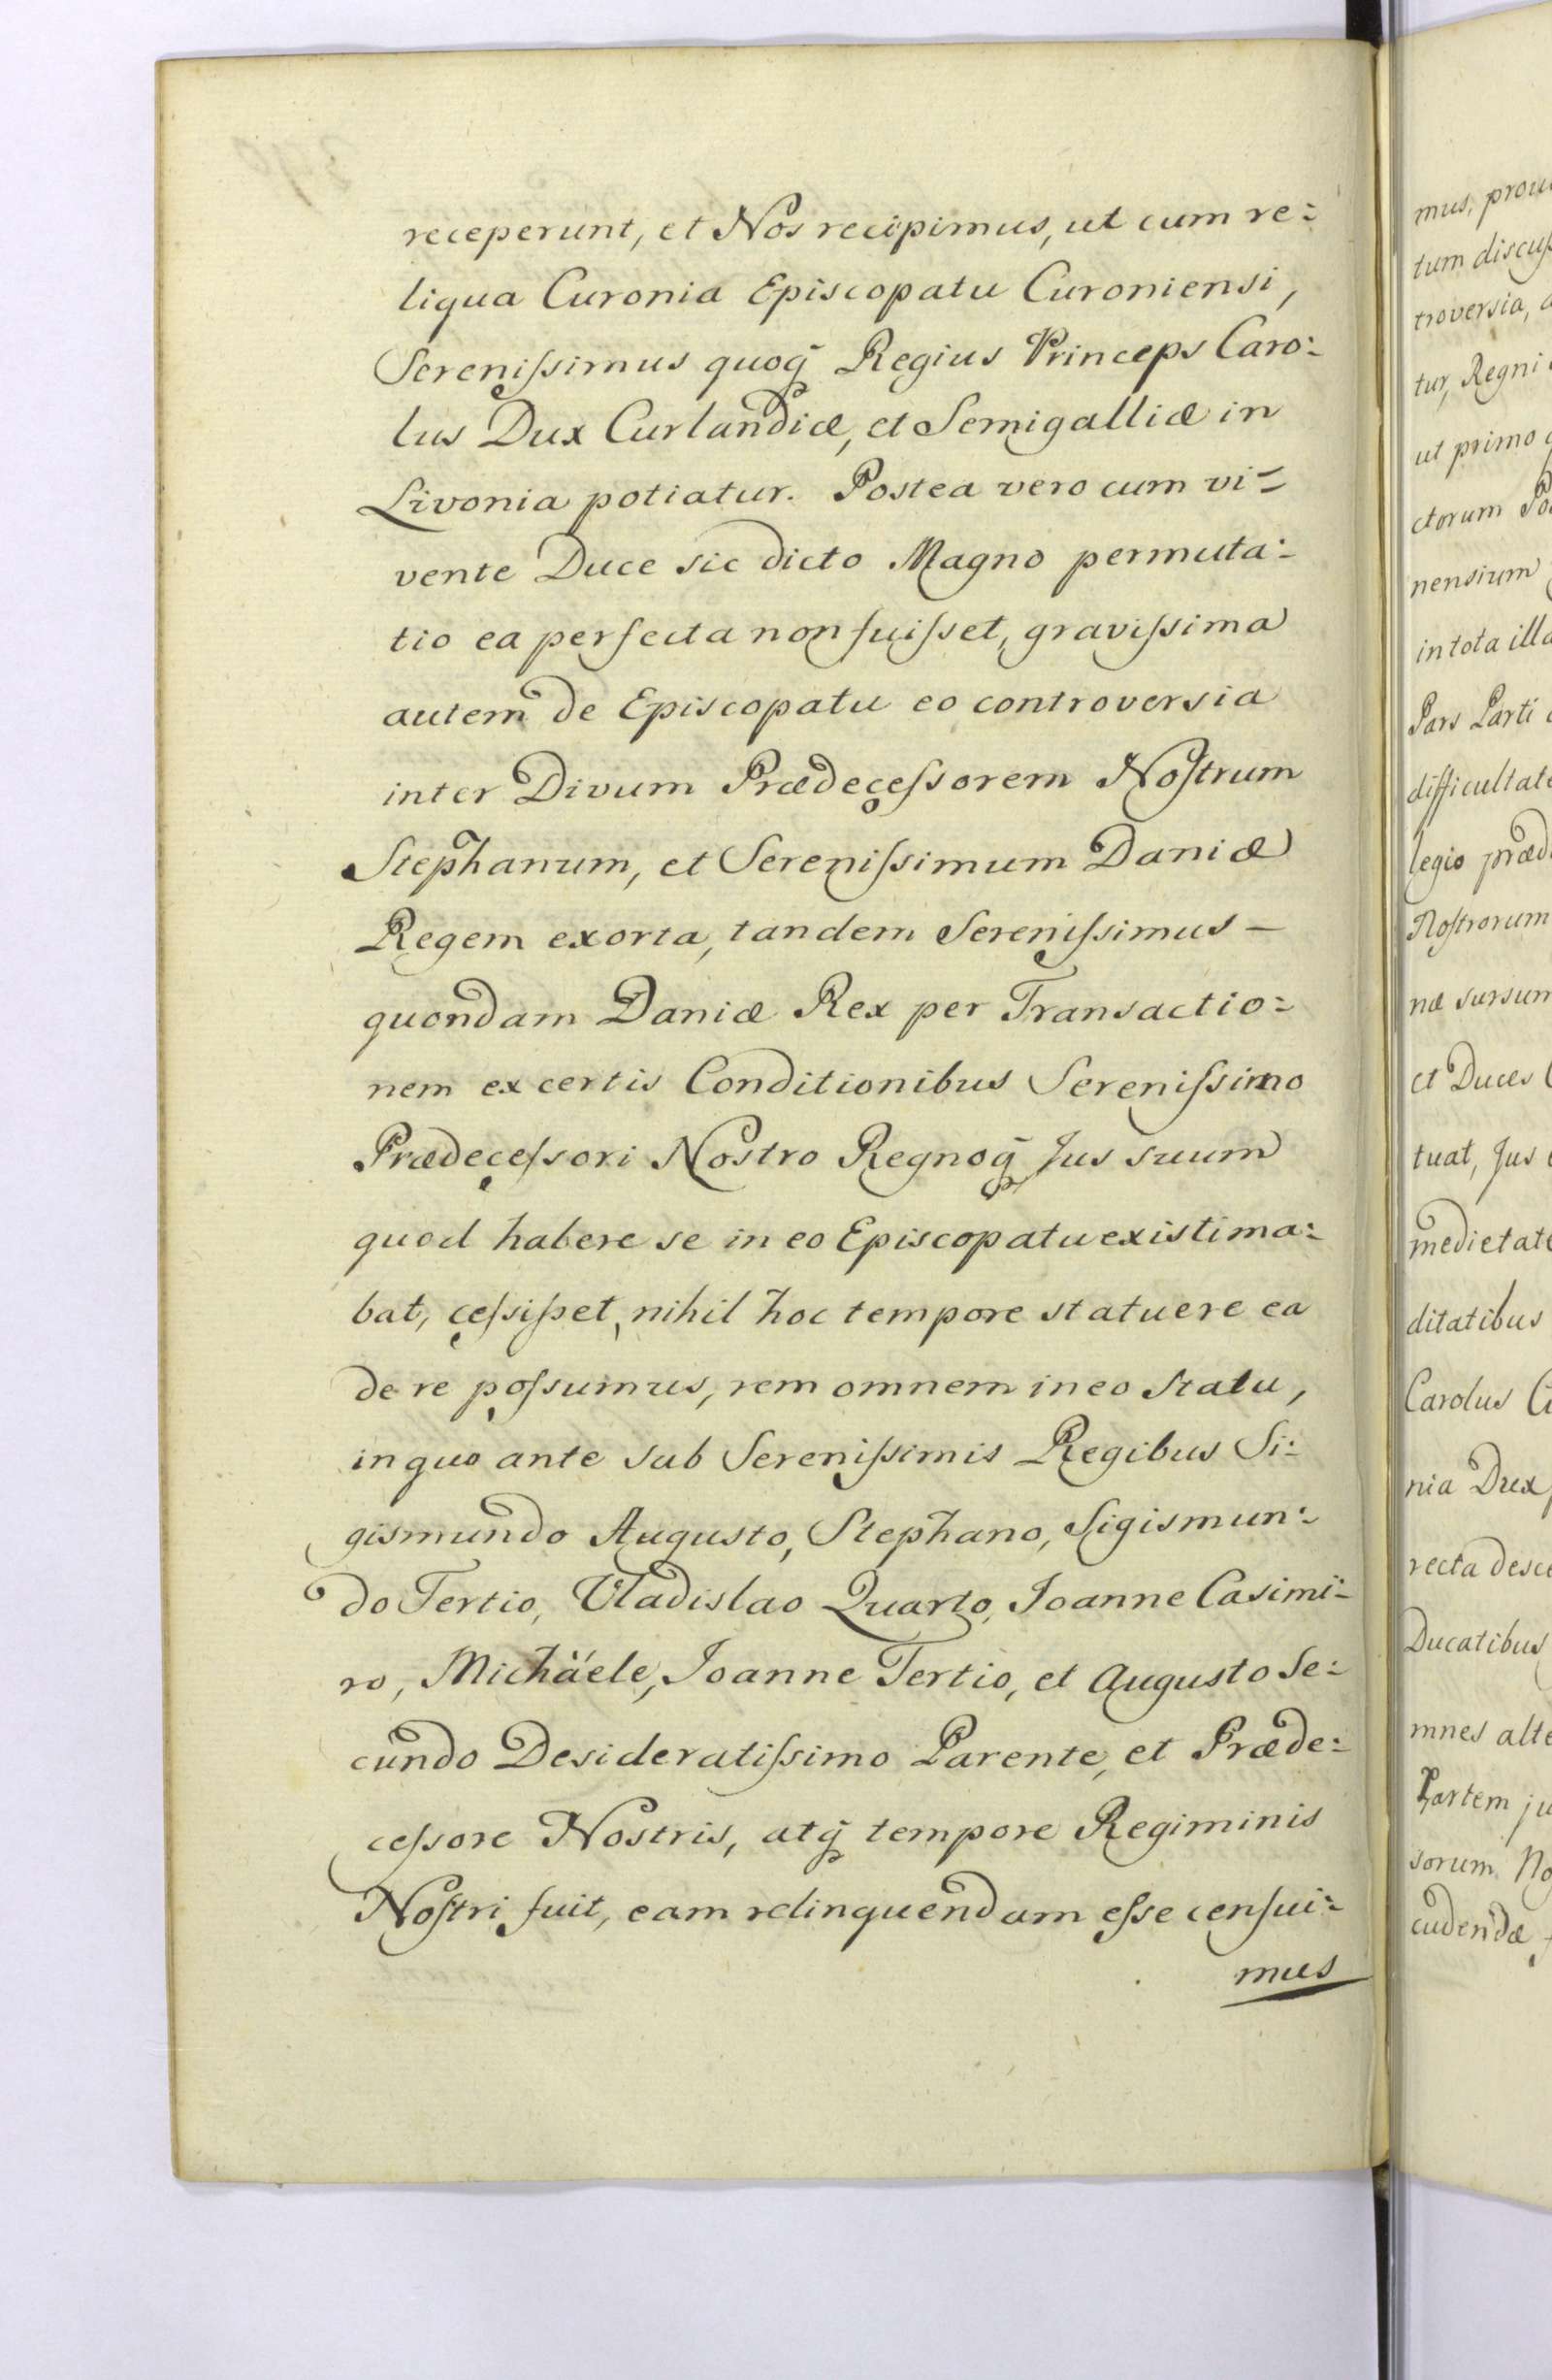 receperunt, et Nos recipimus, ut cum re:
liqua Curonia Episcopatu Curoniensi,
Sereniſsimus quoq̃ Regius Princeps Caro:
lus Dux Curlandiæ, et Semigalliæ in
Livonia potiatur. Postea vero cum vi=
vente Duce sic dicto Magno permuta:
tio ea perfecta non fuiſset, graviſsima
autem de Episcopatu eo controversia
inter Divum Prædeceſsorem Noſtrum
Stephanum, et Sereniſsimum Daniæ
Regem exorta, tandem Sereniſsimus –
quondam Daniæ Rex per Transactio:
nem ex certis Conditionibus Sereniſsimo
Prædeceſsori Nostro Regnoq̃ Jus suum
quod habere se in eo Episcopatu existima:
bat, ceſsiſset, nihil hoc tempore statuere ea
de re poſsumus, rem omnem in eo Statu,
in quo ante sub Sereniſsimis Regibus Si:
gismundo Augusto, Stephano, Sigismun:
do Tertio, Vladislao Quarto, Joanne Casimi:
ro, Michäele, Joanne Tertio, et Augusto Se:
cundo Desideratiſsimo Parente, et Præde:
ceſsore Nostris, atq̃ tempore Regiminis
Noſtri fuit, eam relinquendam eſse cenſui:
mus
mus, prou
tum discuſ
troversia,
tur, Regni
ut primo
ctorum
nensium
in tota illa
Pars Parti
difficultate
legio præd
Noſtrorum
næ sursum
et Duces
tuat, Jus
medietate
ditatibus
Carolus
nia Dux
recta desce
Ducatibus
mnes alte
Partem ju
sorum No
cudendæ